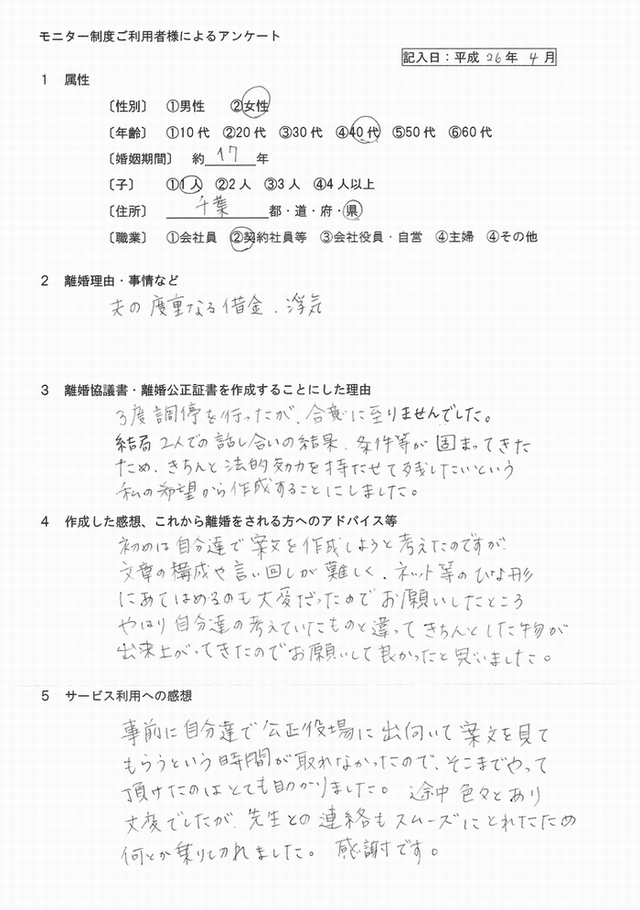 モニター制度ご利用者様によるアンケート
記入日：平成 26年 4月
1 属性
〔性別〕 ①男性 ②女性
〔年齢〕 ①10代 ②20代 ③30代 ④40代 ⑤50代 ⑥60代
〔婚姻期間〕 約 17 年
〔子〕 ①1人 ②2人 ③3人 ④4人以上
〔住所〕 千葉 都・道・府・県
〔職業〕 ①会社員 ②契約社員等 ③会社役員・自営 ④主婦 ④その他
2 離婚理由・事情など
夫の度重なる借金、浮気
3 離婚協議書・離婚公正証書を作成することにした理由
3度調停を行ったが、合意に至りませんでした。
結局2人での話し合いの結果、条件等が固まってきた
ため、きちんと法的効力を持たせて残したいという
私の希望から作成することにしました。
4 作成した感想、これから離婚をされる方へのアドバイス等
初めは自分達で案文を作成しようと考えたのですが
文章の構成や言い回しが難しく、ネット等のひな形
にあてはめるのも大変だったのでお願いしたところ
やはり自分達の考えていたものと違ってきちんとした物が
出来上がってきたのでお願いして良かったと思いました。
5 サービス利用への感想
事前に自分達で公正役場に出向いて案文を見て
もらうという時間が取れなかったので、そこまでやって
頂けたのはとても助かりました。途中色々とあり
大変でしたが、先生との連絡もスムーズにとれたため
何とか乗り切れました。感謝です。